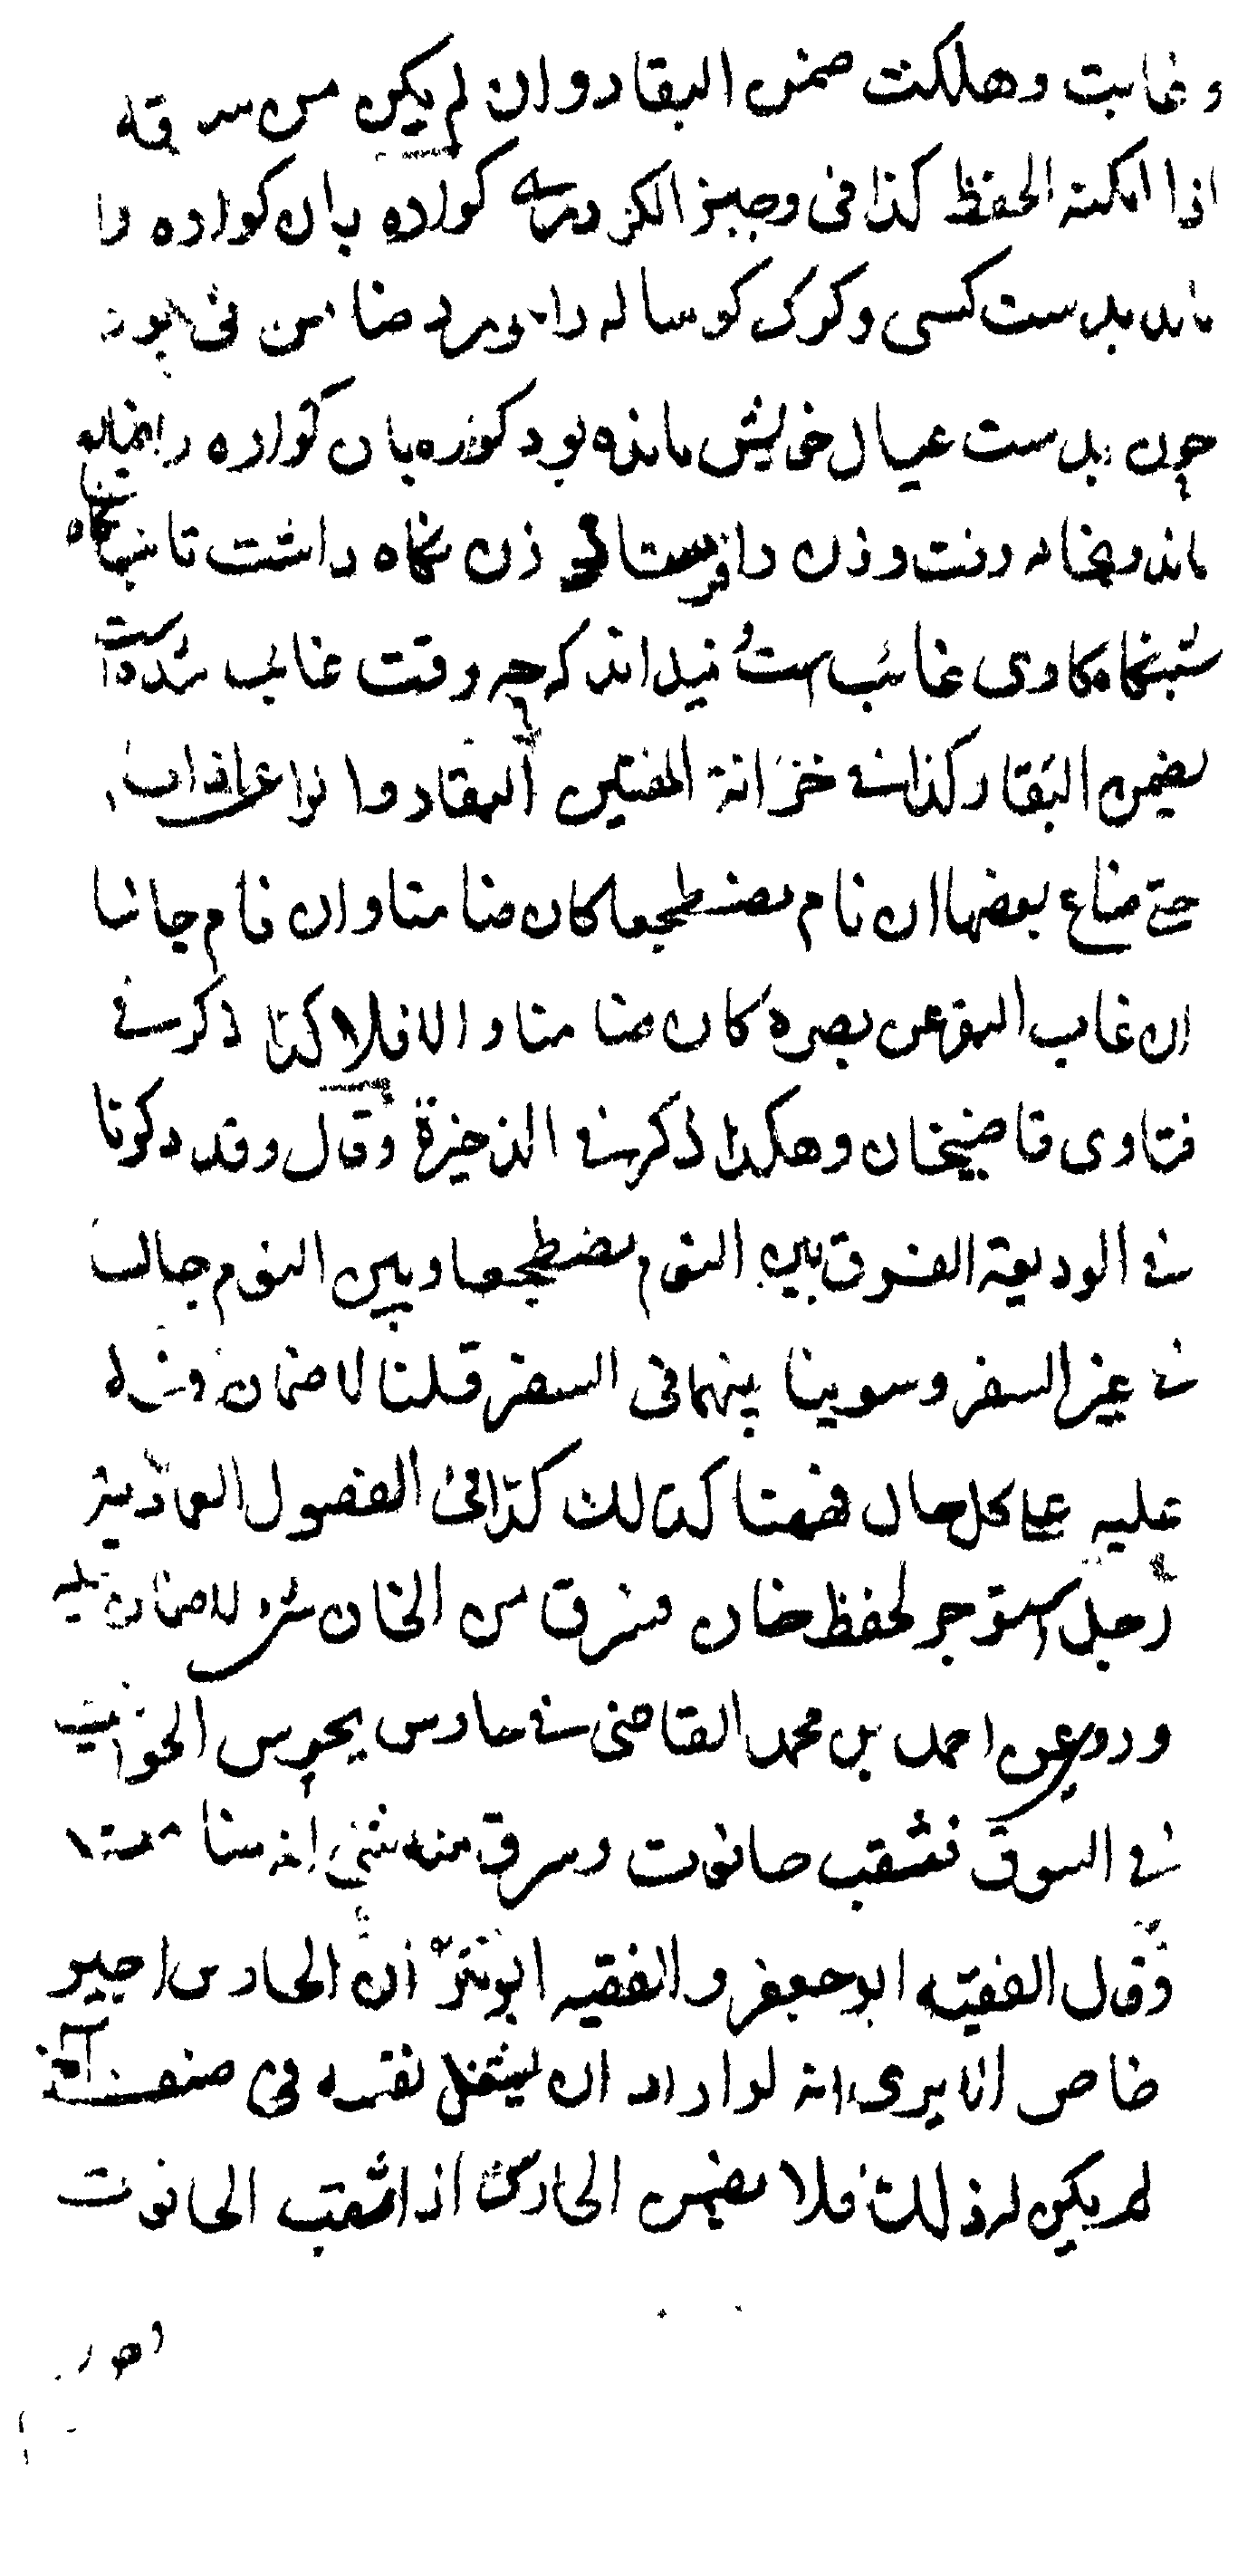 وغابت وهلكت ضمن البقار وان لم يكن من سرقة
اذا امكنه الحفظ كذا فى وجيز الكردرى كواره بان كواره را
ماند بدست كسى وكرك كوساله را ببرد ضامن نى بود
چون بدست عيال خويش مانده بود كوره بان كواره را بخانه
ماند وبخانه رفت وزن را فرستاد زن نگاه داشت تا شبانگاه
شبنگاه گاوى غائب است نميداند كه چه وقت غايب شده است
يضمن البقار كذا فى خزانة المفتين البقار والراعى
حتى ضاع بعضها ان نام مضطجعا كان ضامنا وان نام جالسا
ان غاب البقر عن بصره كان ضامنا والا فلا كذا ذكر فى
فتاوى قاضيخان وهكذا ذكر فى الذخيرة وقال وقد ذكرنا
فى الوديعة الفرق بين النوم مضطجعا وبين النوم جالسا
فى غير السفر وسوينا بينهما فى السفر قلنا لا ضمان
عليه على كل حال فههنا كذلك كذا فى الفصول العمادية
رجل استوجر لحفظ خان فسرق من الخان شئ لا ضمان عليه
وروى عن احمد بن محمد القاضى فى حارس يحرس الحوانيت
فى السوق فنقب حانوت وسرق منه شئ انه ضامن
وقال الفقيه ابو جعفر والفقيه ابو بكر ان الحارس اجير
خاص الا يرى انه لو اراد ان يشغل نفسه فى صنف آخر
لم يكن له ذلك فلا يضمن الحارس اذا نقب الحانوت